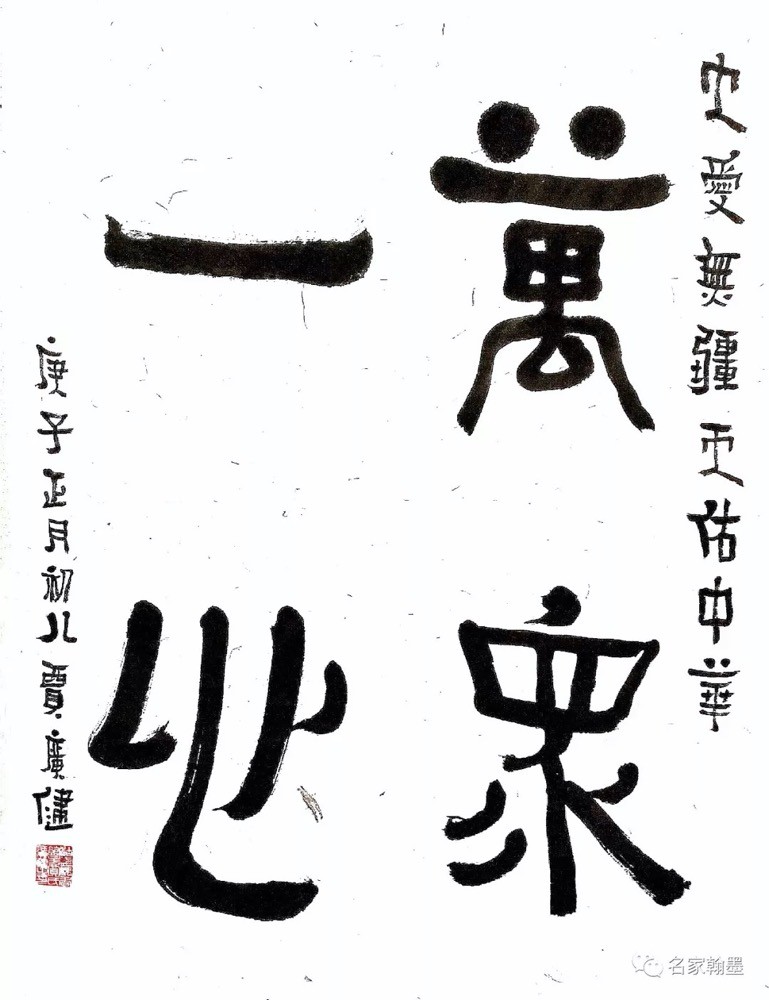 大愛無疆天佑中華
萬衆
一心
庚子正月初八賈廣健
名家翰墨